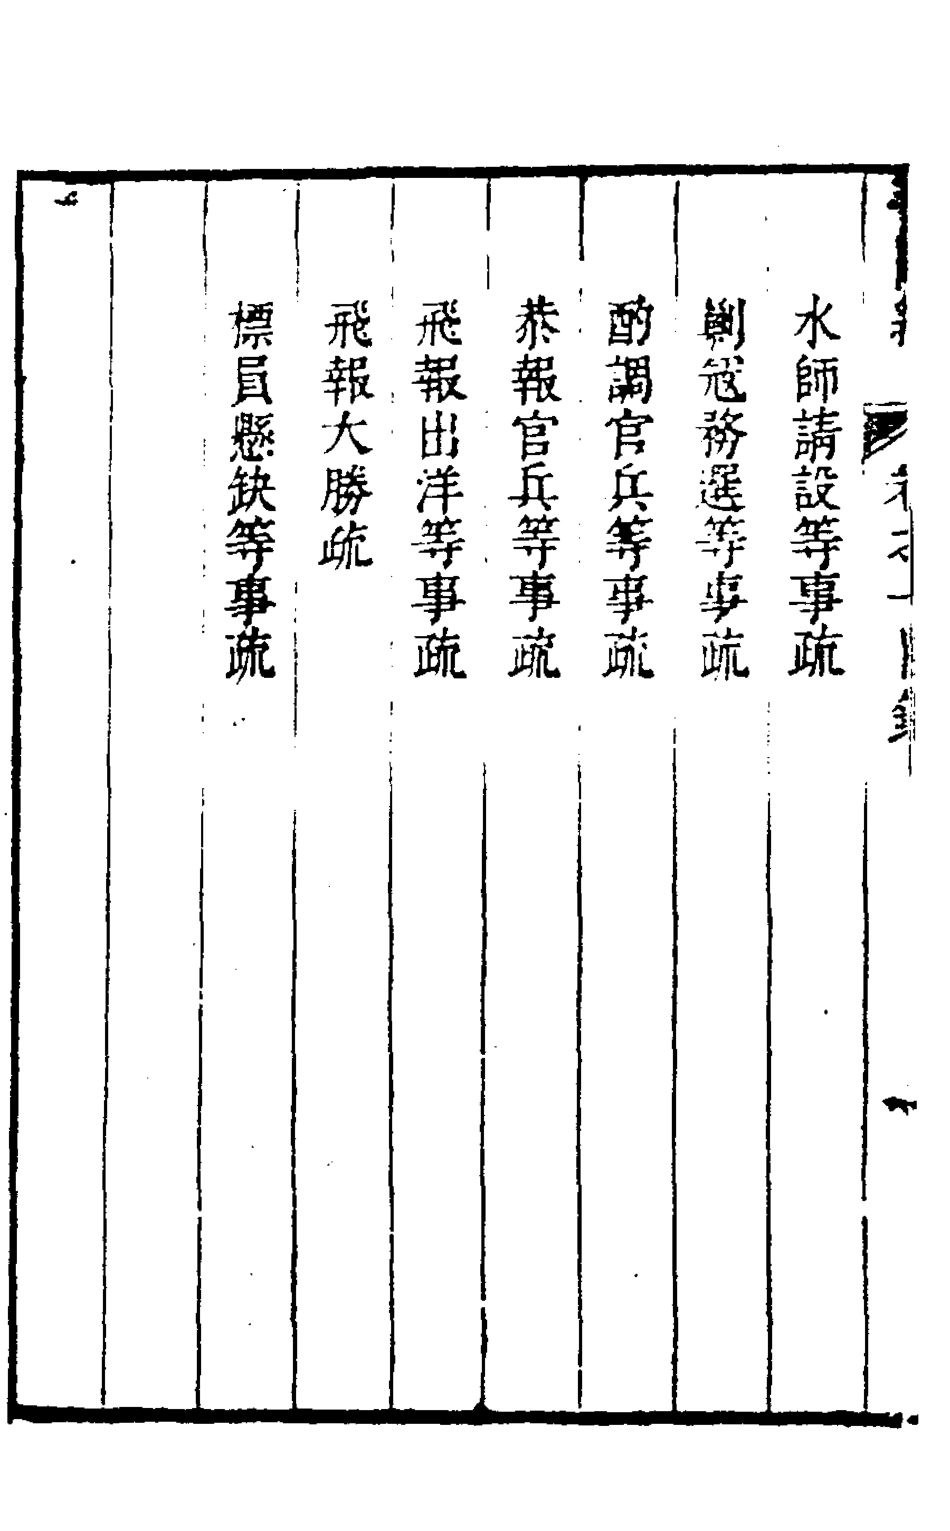 水師請設等事疏
剿寇務選等事疏
酌調官兵等事疏
恭報官兵等事疏
飛報出洋等事疏
飛報大勝疏
標員懸缺等事疏